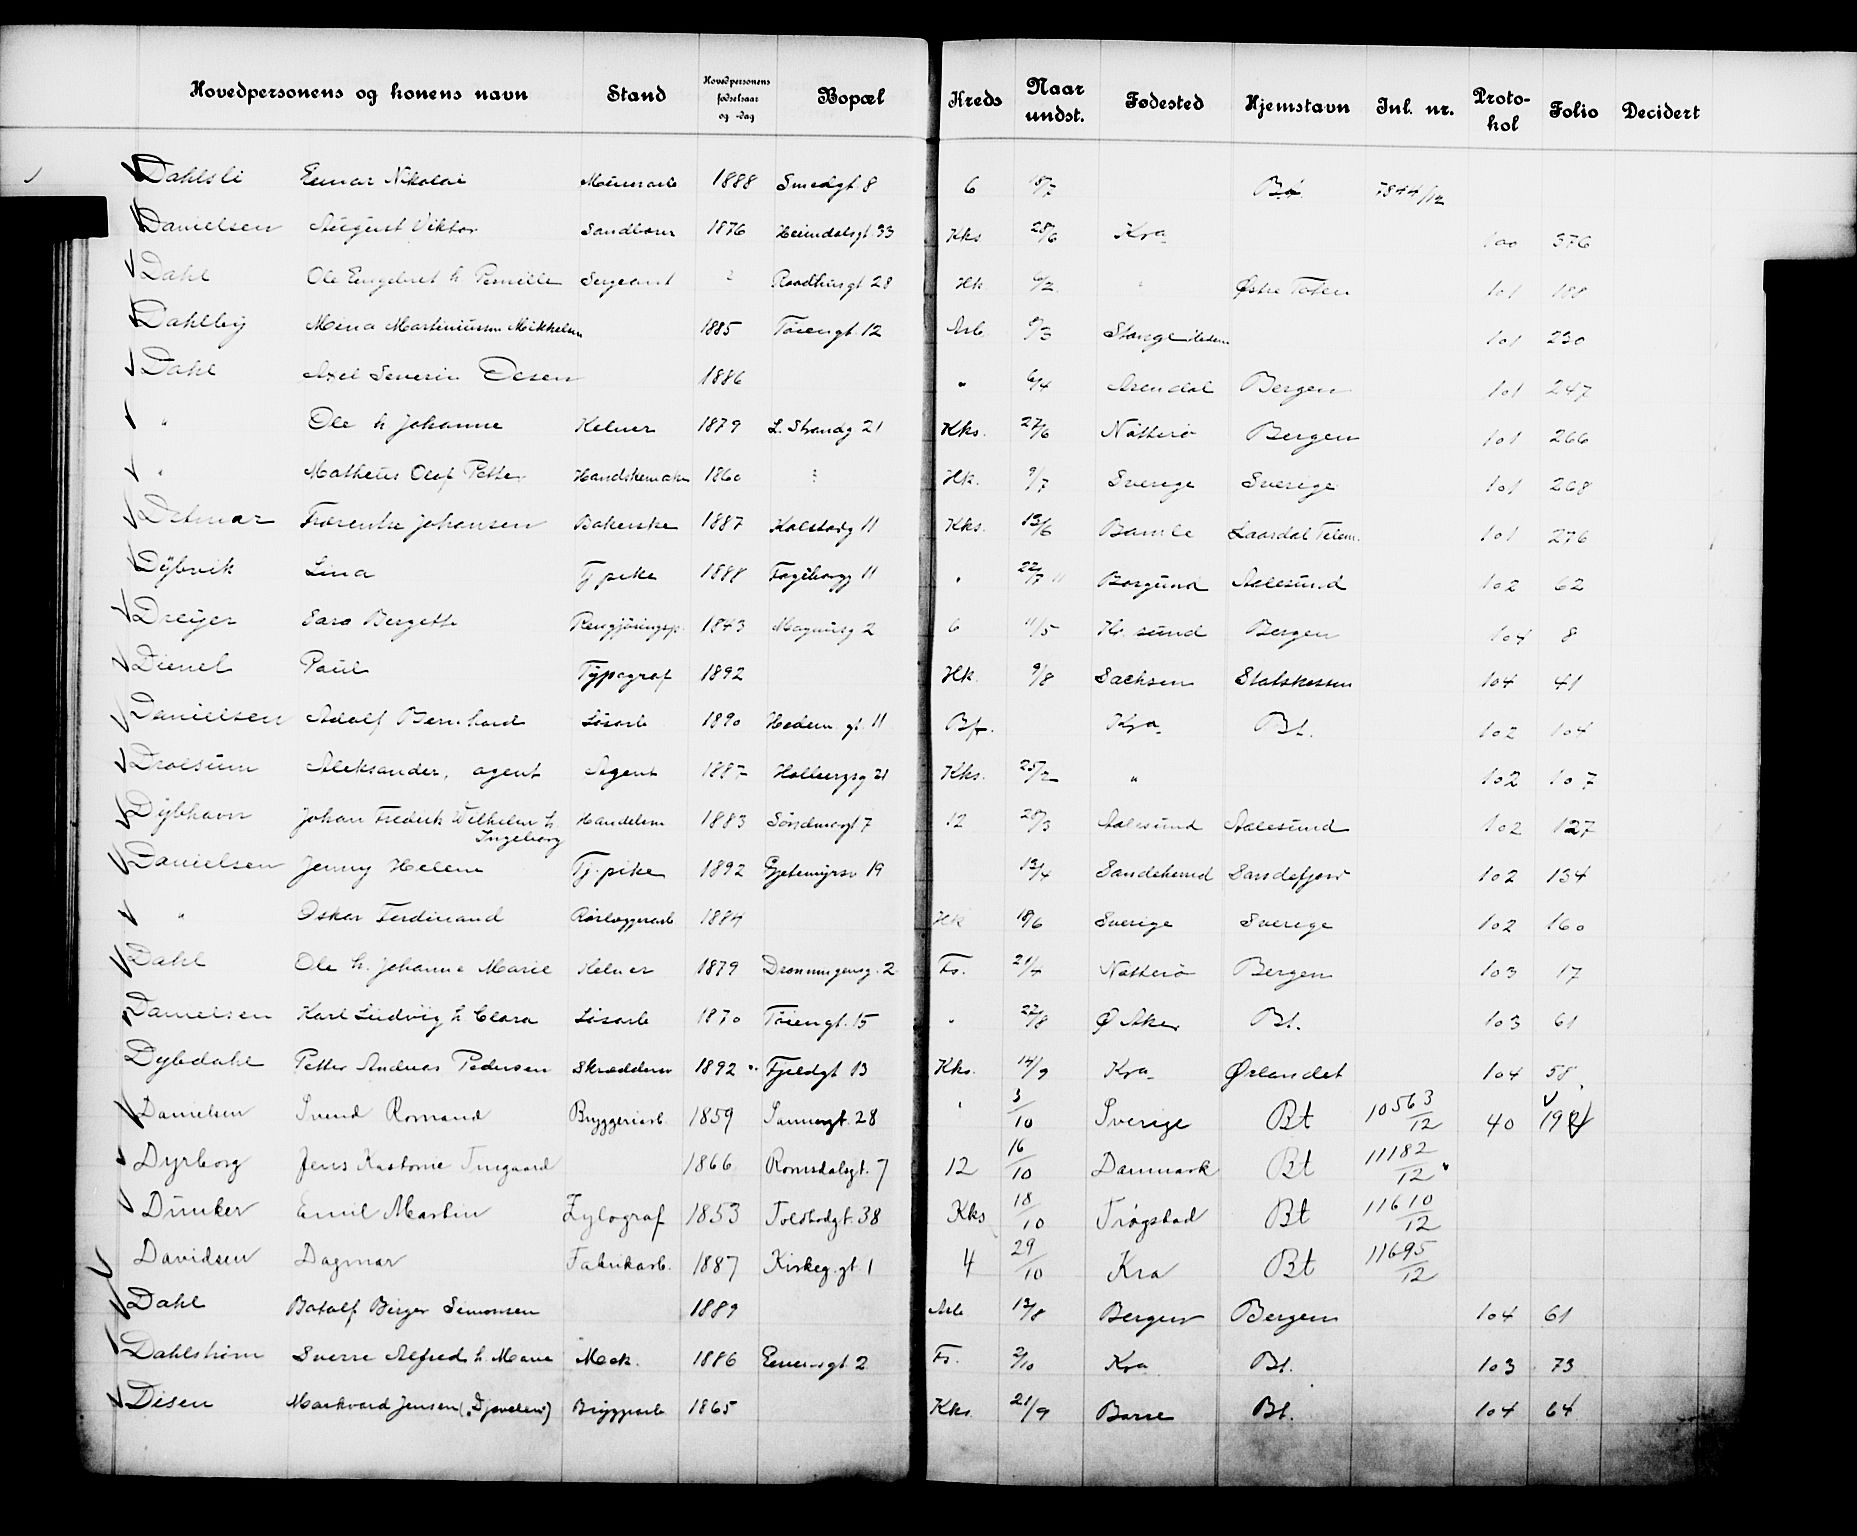 Hovedpersonens og konens navn Stand Hovedpersonens fødselsaar og -dag Bopæl Kreds Naar undst. Fødested Hjemstavn Inl. nr. Protokol Folio Decidert
Dahlsli Einar Nikolai 1888 Smedgt 8 6 18/7 Bø 7844/12
Danielsen August Viktor 1876 Heimdalsgt 33 Kks 28/6 Kra 100 376
Dahl Ole Engebret h Pernille Sergeant ? Raadhusgt 28 Hk 6/2 " Østre Toten 101 188
Dahlby Mina Martiniussen Mikkelsen 1885 Tøiengt 12 Arb. /3 Stange 101 230
Dahl Axel Severin Olsen 1886 " 6/4 Arendal Bergen 101 247
" Ole h Johanne Kelner 1879 L. Strandg 21 Kks. 27/6 Nøtterø Bergen 101 266
" Matheus Olof Petter Handskemaker 1860 ? Hk. 9/7 Sverige Sverige 101 268
Detmar Johansen Bakerske 1887 Kalstadg 11 Kks. 13/6 Bamle Laardal Telem. 101 276
Dybvik Lina Tj pike 1888 Fagerborgg 11 " 22/7 11 Borgund Aalesund 102 62
Dreyer Sara Bergette Rengjøringsp. 1843 Magnusg 2 6 11/5 Kr. sund Bergen 104 8
Dienel Paul Typograf 1892 Hk. 9/8 Sachsen Statskassen 104 41
Danielsen Adolf Bernhard Løsarb 1890 Hedem. gt. 11 Bf. Kra Bt. 102 104
Drolsum Aleksander, agent Agent 1887 Holbergsg 21 Kks. 25/2 " 102 107
Dybhavn Johan Fredrik Wilhelm h Ingeborg Handelsm 1883 Søndmørgt 7 12 28/3 Aalesund Aalesund 102 127
Danielsen Jenny Helene Tj. pike 1892 Gjetemyrsv 19 13/4 Sandeherred Sandefjord 102 134
" Oskar Ferdinand Rørlæggerarb 1884 Hk 18/6 Sverige Sverige 102 160
Dahl Ole h. Johanne Marie Kelner 1879 Dronningensg. 2 Fs. 21/7 Nøtterø Bergen 103 17
Danielsen Karl Ludvig h Clara Løsarb 1870 Tøiengt. 15 " 22/8 Ø Aker Bt. 103 61
Dybdahl Petter Andreas Pedersen Skrædder 1892 Fjeldgt 13 Kks. 14/9 Kra Ørlandet 104 58
Danielsen Svend Romand Bryggeriarb. 1859 Sannergt. 28 " 3/10 Sverige Bt 10563/12 40
Dyrborg Jens Kastonie 1866 Romsdalsgt. 7 12 16/10 Danmark Bt 11182/12
Dunker Emil Martin Xylograf 1853 Toldbodgt. 38 Kks 18/10 Trøgstad Bt 11610/12
Davidsen Dagmar Fabrikarb. 1887 Kirkeg. gt 1 4 29/10 Kra Bt 11695/12
Dahl Botolf Birger Simonsen 1889 Arb 12/8 Bergen Bergen 104 61
Dahlstrøm Sverre Alfred h. Marie Mek. 1886 2 Fs. 2/10 Kra Bt. 103 73
Disen Markvard Jensen Bryggarb 1865 Kks 21/9 Borre Bt. 104 64